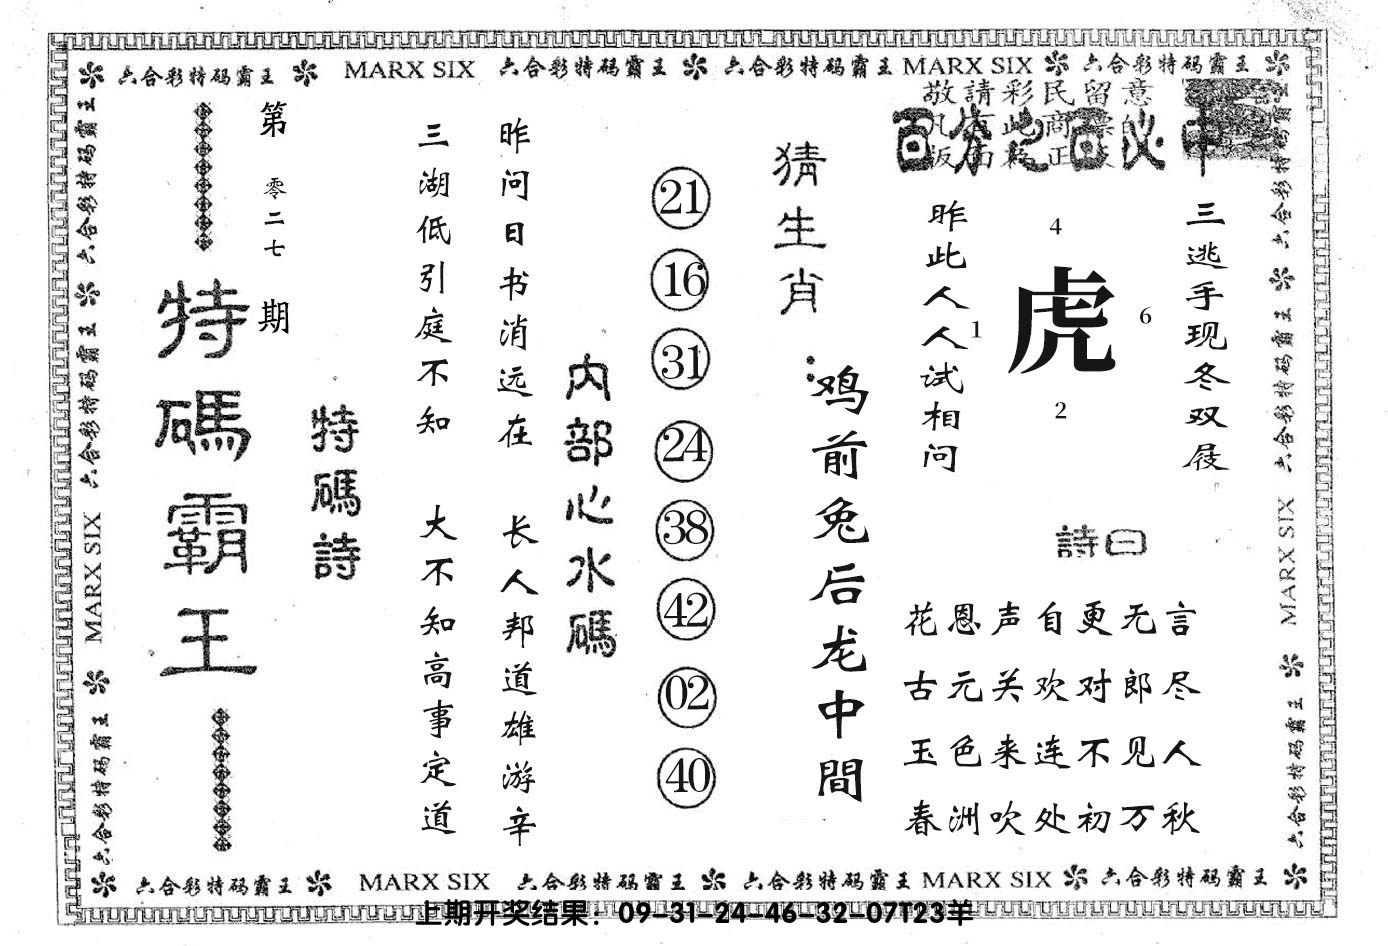 六合彩特码霸王 MARX SIX 六合彩特码霸王 六合彩特码霸王 MARX SIX 六合彩特码霸王
敬請彩民留意
百分之百必中
三逃手现冬双屐
4
虎
6
1
2
昨此人人试相问
詩曰
花恩声自更无言
古元关欢对郎尽
玉色来连不见人
春洲吹处初万秋
猜生肖：
鸡前兔后龙中間
21
16
31
24
38
42
02
40
内部心水碼
昨问日书消远在 长人邦道雄游辛
三湖低引庭不知 大不知高事定道
特碼詩
第零二七期
特碼霸王
六合彩特码霸王 六合彩特码霸王 MARX SIX 六合彩特码霸王
六合彩特码霸王 六合彩特码霸王 MARX SIX 六合彩特码霸王
六合彩特码霸王 MARX SIX 六合彩特码霸王 六合彩特码霸王 MARX SIX 六合彩特码霸王
上期开奖结果：09-31-24-46-32-07T23羊